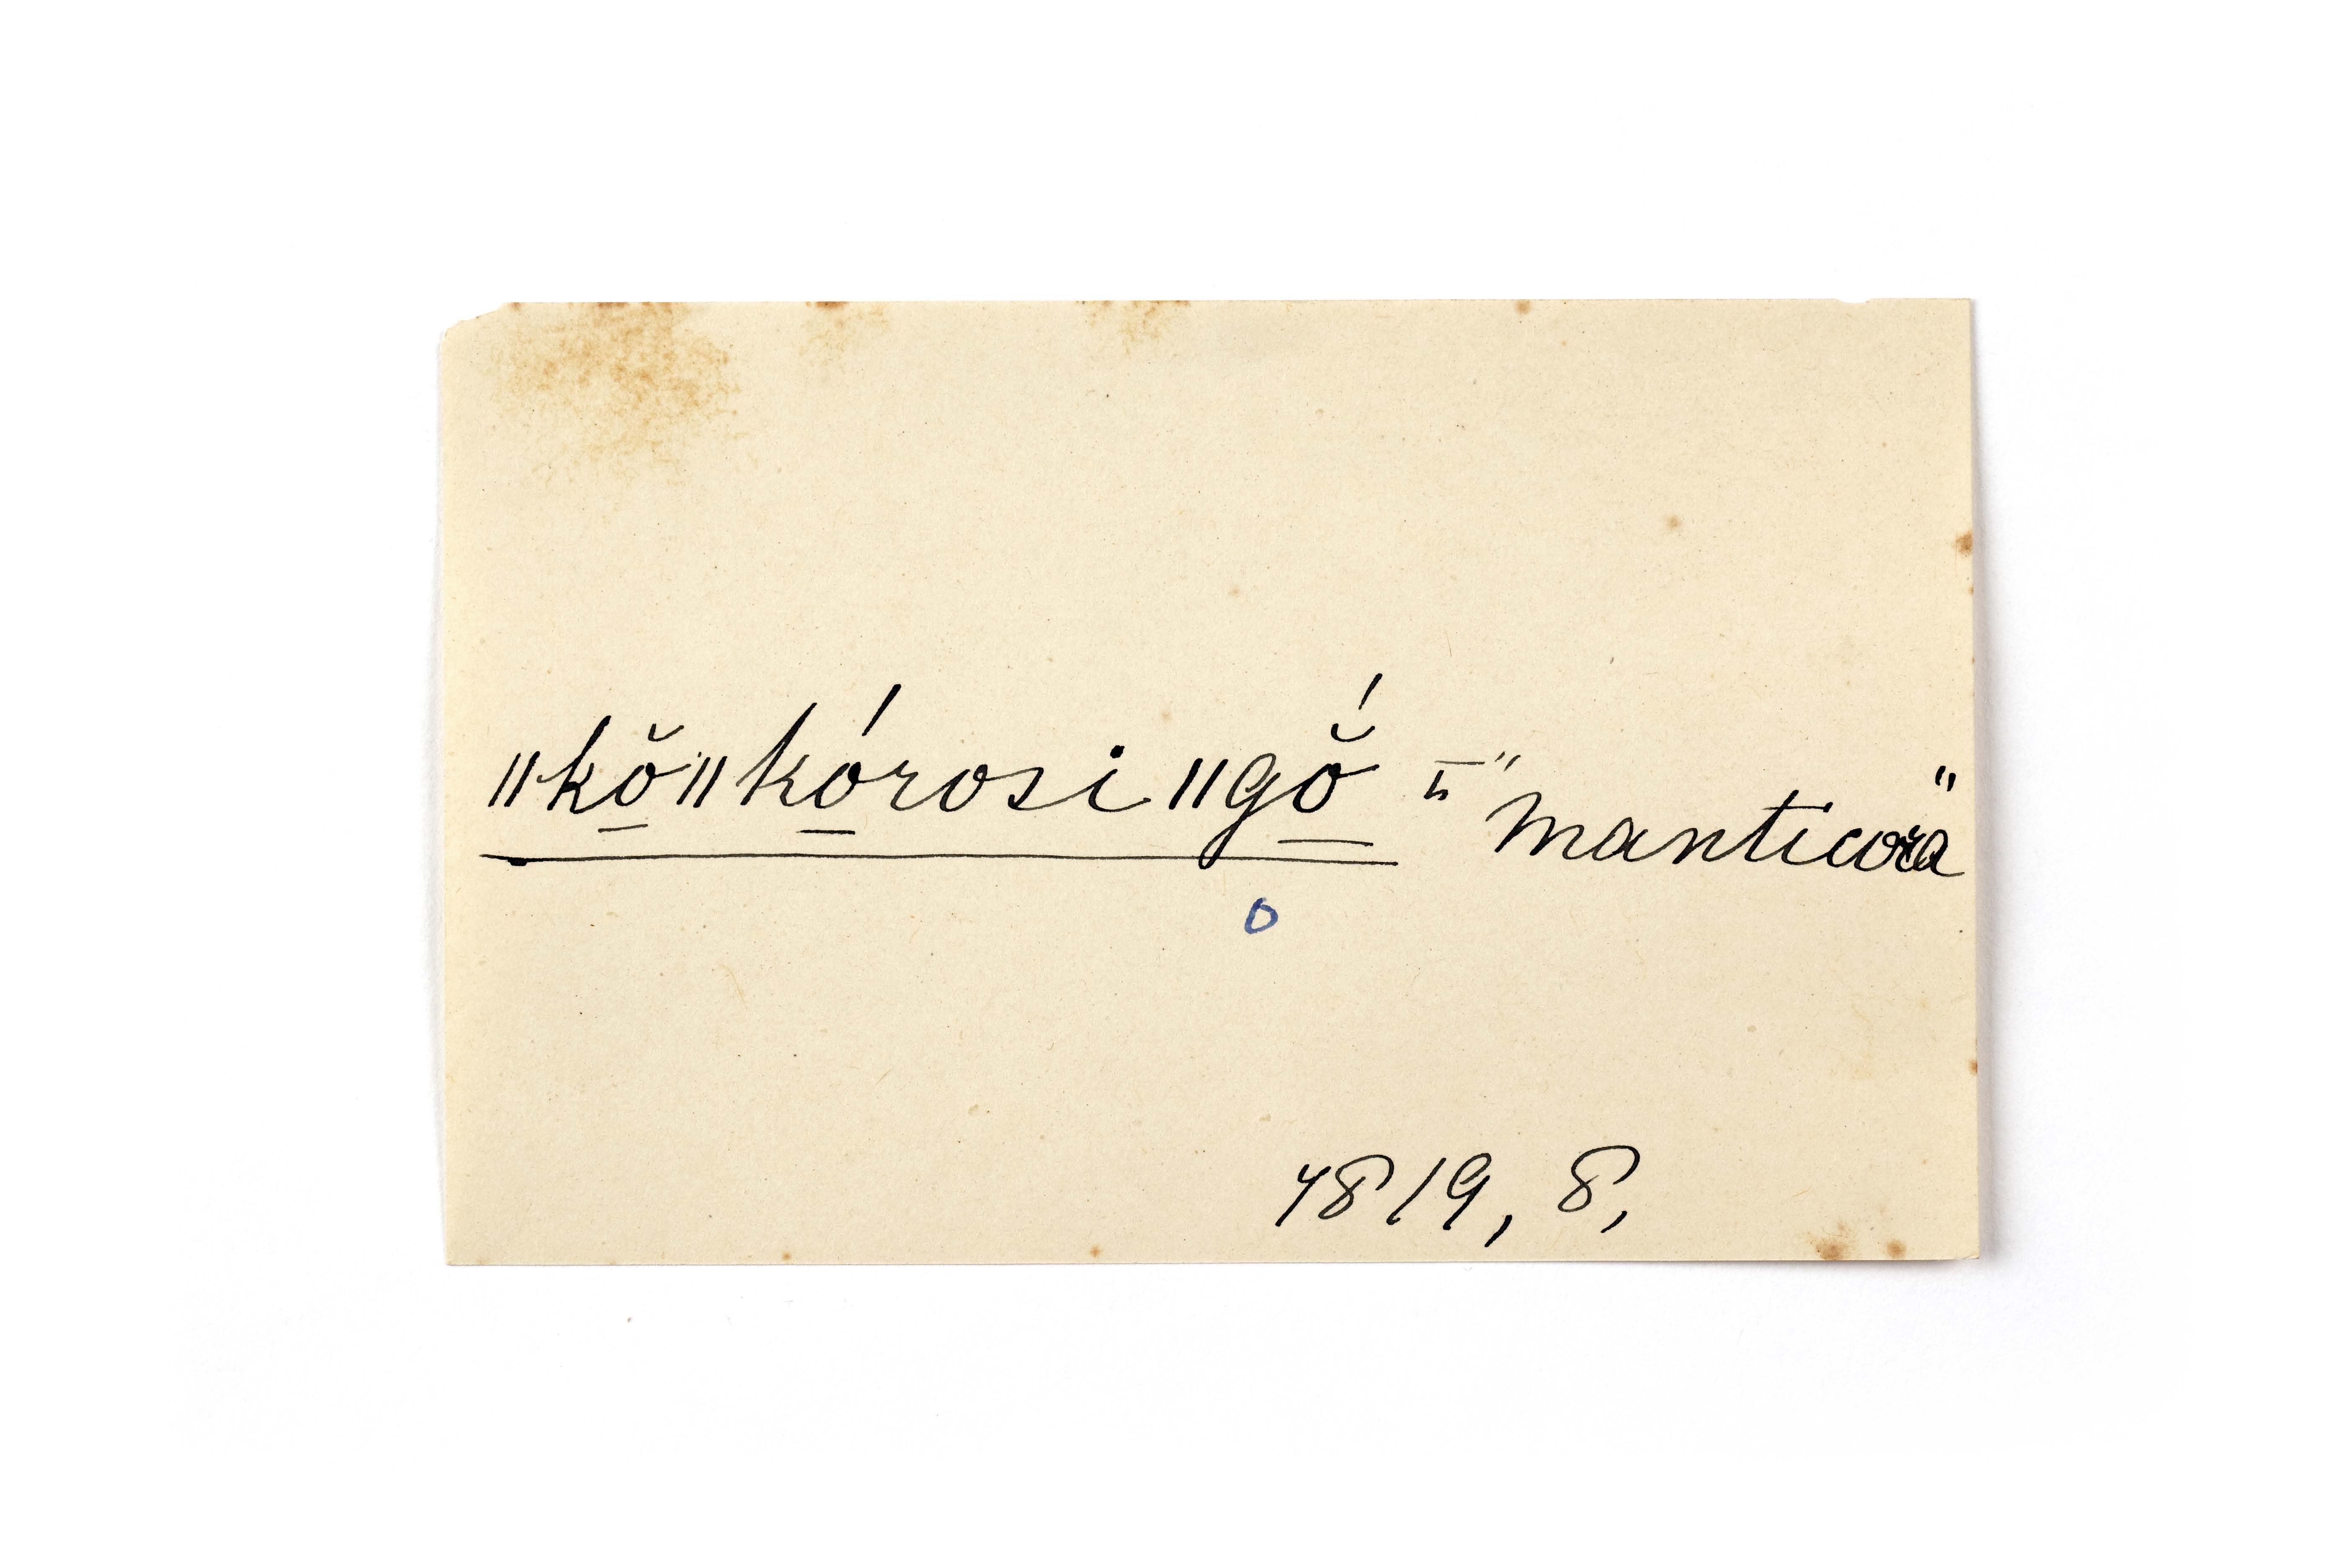 ǁkŏ̱ǁkó̱rosi ǁgŏ̱́ " Manticora "
o
4819, 8,